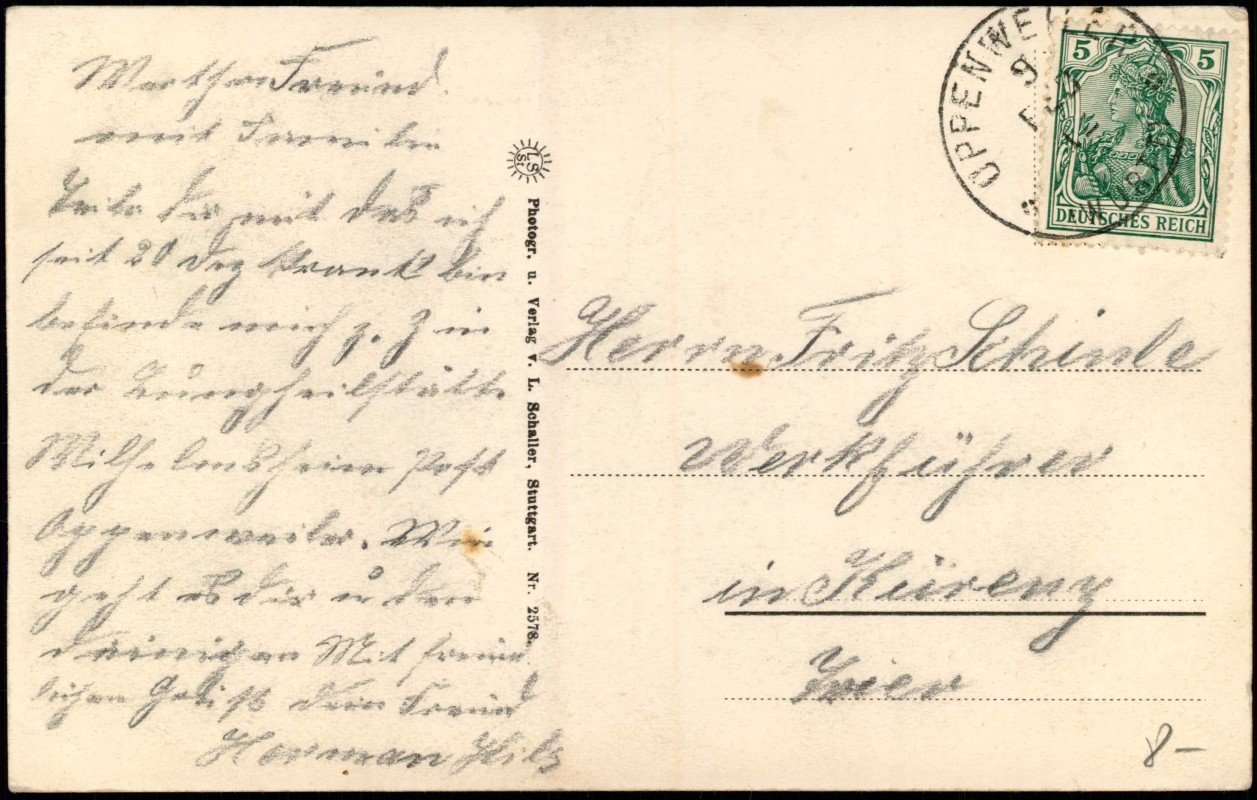 Werther Freund
mit Familie
Teile dir mit das ich
seit 20 Dez krank bin
befinde mich z. Z in
der Lungheilstätte
Wilhelmsheim Post
Oppenweiler. Wie
geht es dir u den
deinigen Mit freund
lichen Grüß dein Freund
Herman Hilz
LS
St
Photogr. u. Verlag v. L. Schaller, Stuttgart. Nr. 2578.
OPPENWEILER
9
WÜRTT.
5 5
DEUTSCHES REICH
Herrn Fritz Schinle
Werkführer
in Kürenz
Trier
8-